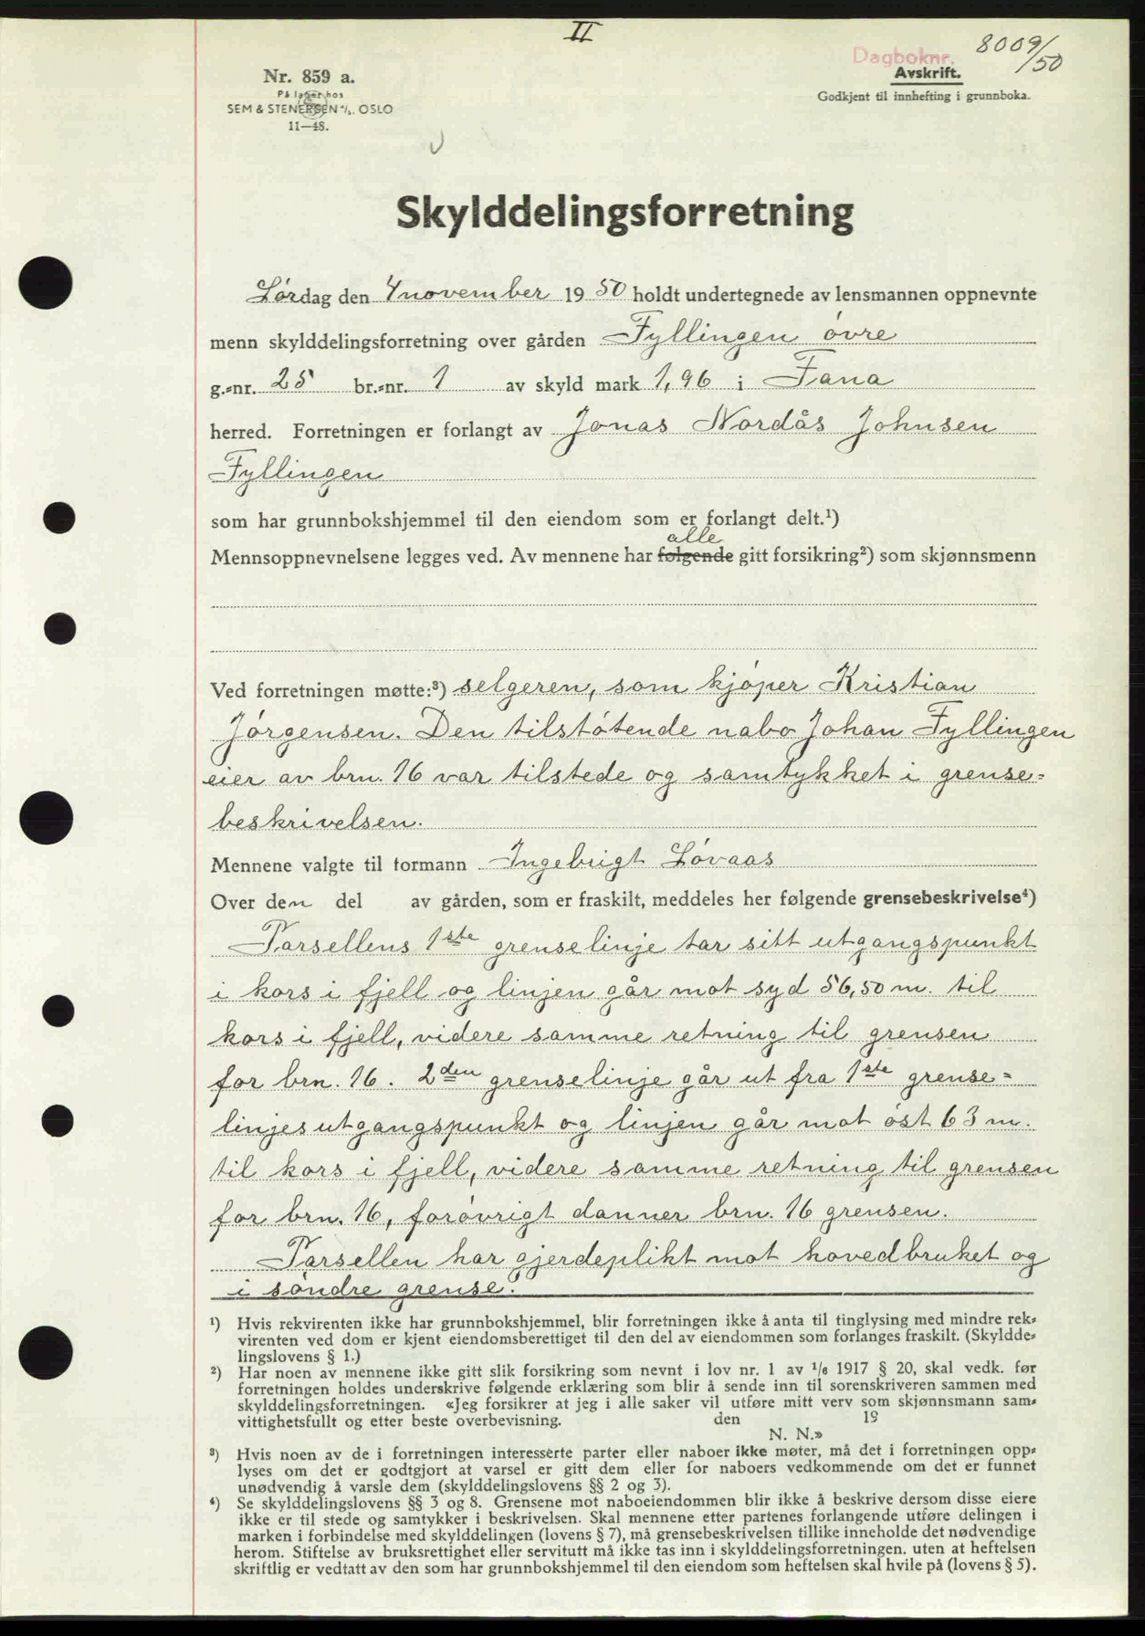 II
Dagboknr. 8009/50
Avskrift.
Godkjent til innhefting i grunnboka.
Nr. 859 a.
På lager hos
SEM & STENERSEN A/S. OSLO
11—48.
Skylddelingsforretning
Lørdag den 4 november 1950 holdt undertegnede av lensmannen oppnevnte
menn skylddelingsforretning over gården Fyllingen övre
g.-nr. 25 br.-nr. 1 av skyld mark 1,96 i Fana
herred. Forretningen er forlangt av Jonas Nordås Johnsen
Fyllingen
som har grunnbokshjemmel til den eiendom som er forlangt delt.¹)
alle
Mennsoppnevnelsene legges ved. Av mennene har følgende gitt forsikring²) som skjønnsmenn
Ved forretningen møtte:³) selgeren, som kjöper Kristian
Jörgensen. Den tilstötende nabo Johan Fyllingen
eier av brn. 16 var tilstede og samtykket i grense=
beskrivelsen.
Mennene valgte til formann Ingebrigt Lövaas
Over den del av gården, som er fraskilt, meddeles her følgende grensebeskrivelse⁴)
Parsellens 1ste grenselinje tar sitt utgangspunkt
i kors i fjell og linjen går mot syd 56,50 m. til
kors i fjell, videre samme retning til grensen
for brn. 16. 2den grenselinje går ut fra 1ste grense=
linjes utgangspunkt og linjen går mot öst 63 m.
til kors i fjell, videre samme retning til grensen
for brn. 16, forövrigt danner brn. 16 grensen.
Parsellen har gjerdeplikt mot hovedbruket og
i söndre grense.
¹) Hvis rekvirenten ikke har grunnbokshjemmel, blir forretningen ikke å anta til tinglysing med mindre rek-
virenten ved dom er kjent eiendomsberettiget til den del av eiendommen som forlanges fraskilt. (Skyldde-
lingslovens § 1.)
²) Har noen av mennene ikke gitt slik forsikring som nevnt i lov nr. 1 av 1/6 1917 § 20, skal vedk. før
forretningen holdes underskrive følgende erklæring som blir å sende inn til sorenskriveren sammen med
skylddelingsforretningen. «Jeg forsikrer at jeg i alle saker vil utføre mitt verv som skjønnsmann sam-
vittighetsfullt og etter beste overbevisning. den 19
N. N.»
³) Hvis noen av de i forretningen interesserte parter eller naboer ikke møter, må det i forretningen opp-
lyses om det er godtgjort at varsel er gitt dem eller for naboers vedkommende om det er funnet
unødvendig å varsle dem (skylddelingslovens §§ 2 og 3).
⁴) Se skylddelingslovens §§ 3 og 8. Grensene mot naboeiendommen blir ikke å beskrive dersom disse eiere
ikke er til stede og samtykker i beskrivelsen. Skal mennene etter partenes forlangende utføre delingen i
marken i forbindelse med skylddelingen (lovens § 7), må grensebeskrivelsen tillike inneholde det nødvendige
herom. Stiftelse av bruksrettighet eller servitutt må ikke tas inn i skylddelingsforretningen. uten at heftelsen
skriftlig er vedtatt av den som har grunnbokshjemmel til den eiendom som heftelsen skal hvile på (lovens § 5).